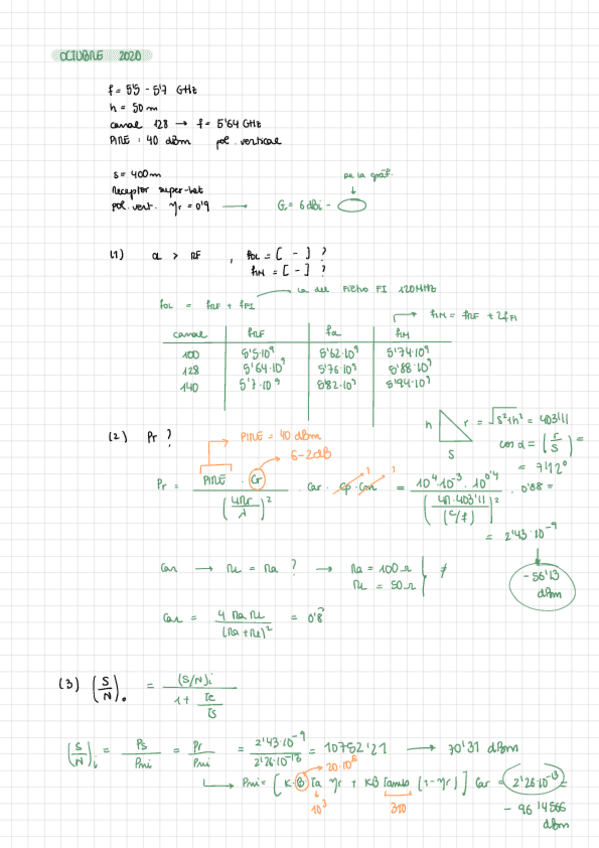 OCTUBRE 2020
f = 5'5 - 5'7 GHz
h = 50 m
canal 128 → f = 5'64 GHz
PIRE : 40 dBm pol. vertical
s = 400 m
Receptor super-het
pol. vert. ηr = 0'9 → Gr = 6 dBi -
De la gráf.
(1) OL > RF , fOL = [ - ] ?
fIM = [ - ] ?
fOL = fRF + fFI
la del filtro FI 120 MHz
fIM = fRF + 2fFI
canal fRF fOL fIM
100 5'5·10⁹ 5'62·10⁹ 5'74·10⁹
128 5'64·10⁹ 5'76·10⁹ 5'88·10⁹
140 5'7·10⁹ 5'82·10⁹ 5'94·10⁹
(2) Pr ?
PIRE = 40 dBm
6-2dB
h r s
r = √s²+h² = 403'11
cos α = (r/s) =
= 7'12°
Pr = PIRE · Gr / (4πr/λ)² · Car · Cp · Con = 10⁴·10⁻³·10^0'4 / (4π·403'11/(c/f))² · 0'88 =
1 1
= 2'43·10⁻⁹
-56'13
dBm
Car → RL = Ra ? → Ra = 100 Ω
RL = 50 Ω
≠
Car = 4 Ra RL / (Ra + RL)² = 0'8
(3) (S/N)o = (S/N)i / 1 + Te/Ts
(S/N)i = Ps/Pni = Pr/Pni = 2'43·10⁻⁹ / 2'26·10⁻¹³ = 10752'21 → 40'31 dBm
20·10⁶
Pni = [K·B Ta ηr + KB Tamb (1-ηr)] Car = 2'26·10⁻¹³ =
10³
310
- 96'4566
dBm